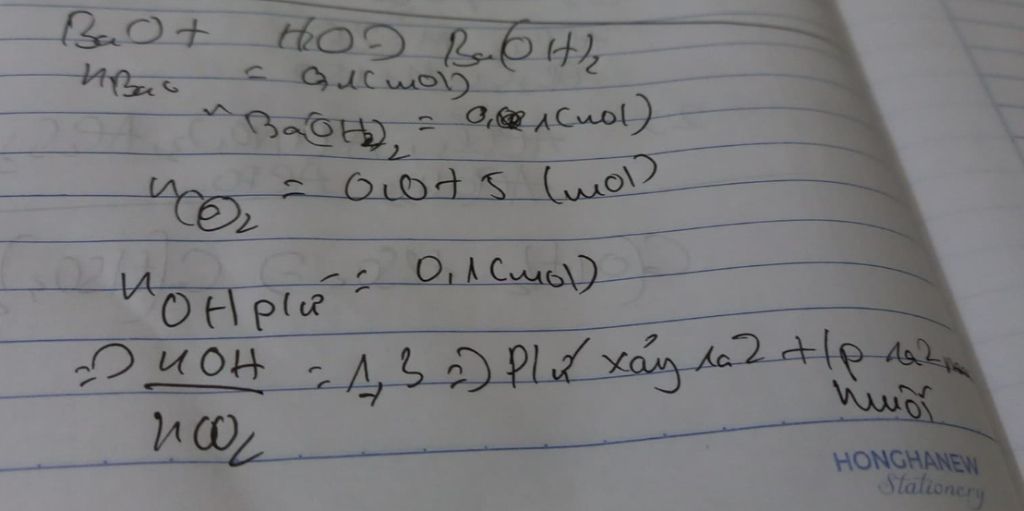 BaO + H2O => Ba(OH)2
nBaO = 0,1(mol)
nBa(OH)2 = 0,1(mol)
nCO2 = 0,075 (mol)
nOH pứ = 0,1(mol)
=> nOH/nCO2 = 1,3 => Pứ xảy ra 2 + Hp ra 2
muối
HONGHANEW
Stationery